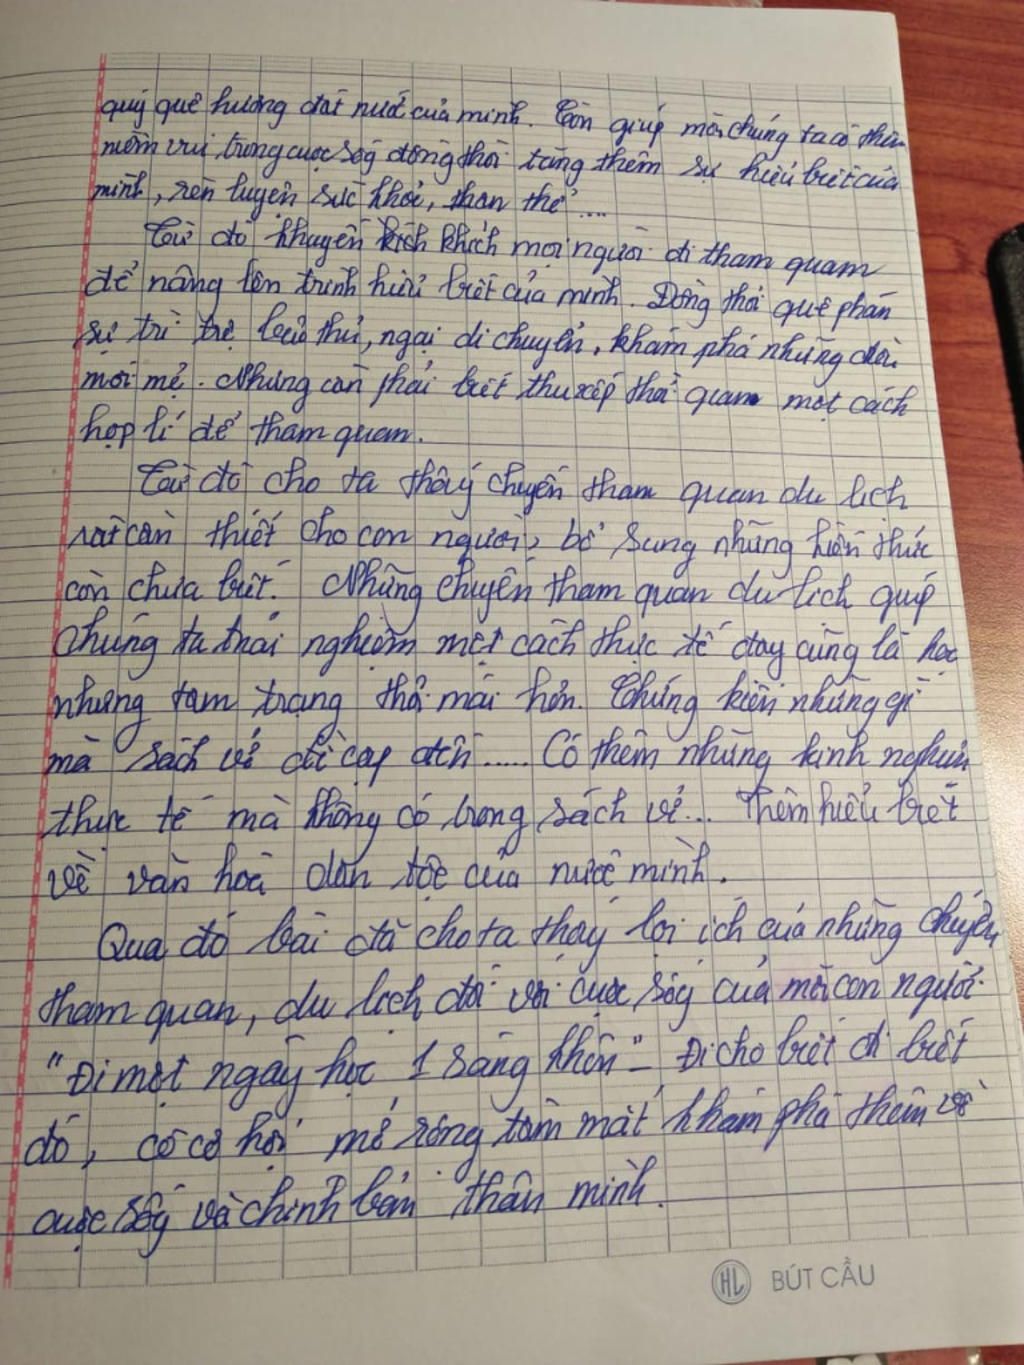 quý quê hương đất nước của mình. Còn giúp mỗi chúng ta có thêm
niềm vui trong cuộc sốg đồng thời tăng thêm sự hiểu biết của
mình, rèn luyện sức khỏe, thân thể ...
Từ đó khuyến khích mọi người đi tham quam
để nâng lên trình hiểu biết của mình. Đồng thời quê phán
sự trì trệ, thủ, ngại di chuyển, khám phá những điều
mới mẻ. Nhưng cần phải biết thu xếp thời quan một cách
hợp lí để tham quan.
Từ đó cho ta thấy chuyến tham quan du lịch
rất cần thiết cho con người, bổ sung những kiến thức
còn chưa biết. Những chuyến tham quan du lịch giúp
chúng ta trải nghiệm một cách thực tế đay cũng là học
nhưng tam trạng thoải mái hơn. Chứng kiến những gì
mà sách vở đề cập đến ..... Có thêm những kinh nghiệm
thực tế mà không có trong sách vở... Thêm hiểu biết
về văn hoá dân tộc của nước mình.
Qua đó bài đã cho ta thấy lợi ích của những chuyến
tham quan, du lịch đối với cuộc sốg của mỗi con người.
"Đi một ngày học 1 sàng khôn" - Đi cho biết đi biết
đó, có cơ hội mở rộng tầm mắt khám phá thêm về
cuộc sốg và chính bản thân mình.
HL BÚT CẦU